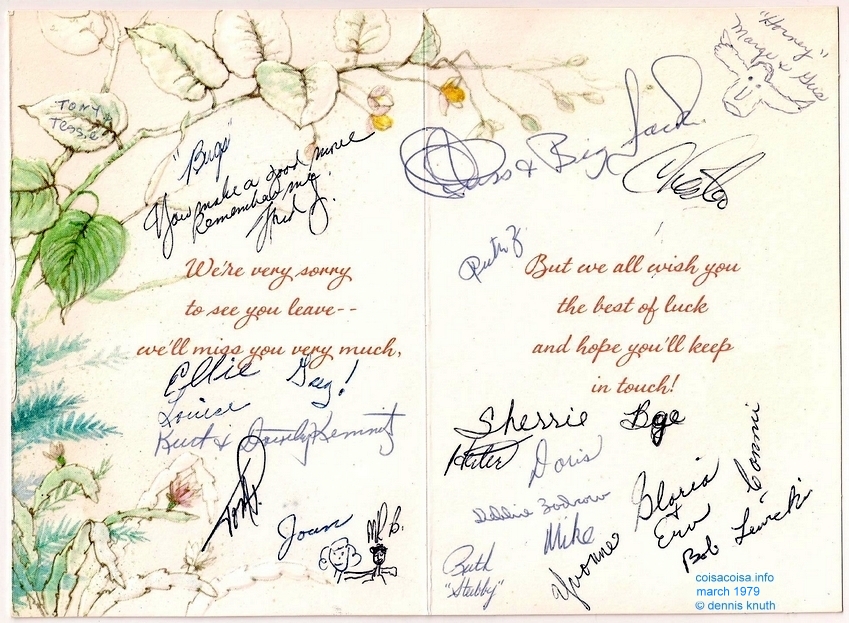 TONY
Tessie
"Bugs"
You make a good move
Remember me!
Fred J.
We're very sorry
to see you leave--
we'll miss you very much,
Ellie Greg!
Louise
Kurt &
Tom P.
Joan
MR B.
"Horney"
Marge & Gus
& Big Jack
Chester
Ruth Z
But we all wish you
the best of luck
and hope you'll keep
in touch!
Sherrie Bge
Doris
Debbie Zodrow
Mike
Gloria
+
Erv
Connie
Bob
Yvonne
Ruth
"Stubby"
coisacoisa.info
march 1979
© dennis knuth